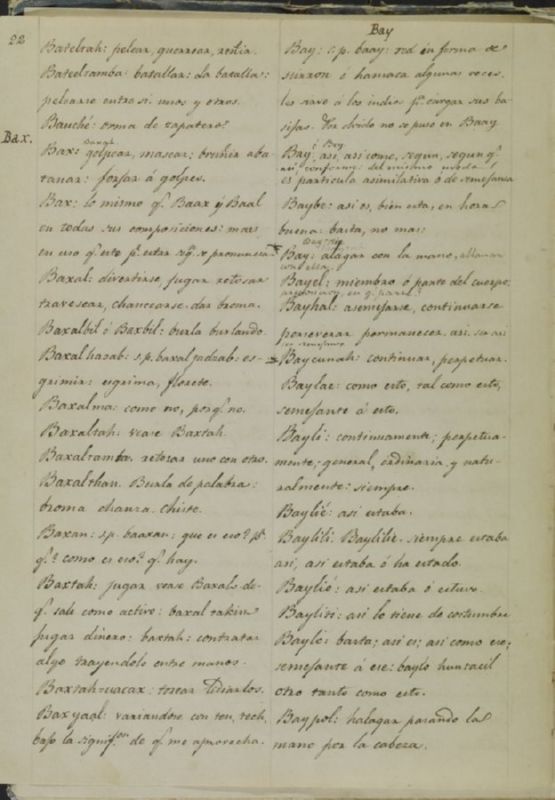 22
Bateltah: pelear, guerrear, reñir.
Bateltamba: batallar: la batalla:
pelearse entre si unos y otros.
Bauché: orma de zapatero.
Bax.
Bax: golpear, mascar; bruñir aba-
tanar: forjar á golpes.
Bax: lo mismo q.e Baax y Baal
en todas sus composiciones: mas
en uso q.e este p.r estar se pronuncia
Baxal: divertirse, jugar retosar
travesear, chancearse. dar broma.
Baxalbil ó Baxbil: burla burlando.
Baxal hadzab: s.p. baxal jadzab: es-
grimir: esgrima, florete.
Baxalma: como no, porq.e no.
Baxaltah: vease Baxtah.
Baxaltamba. retosar uno con otro.
Baxalthan. Burla de palabra:
broma chanza, chiste.
Baxan: s.p. baaxan: que es eso? p.r
q.e? como es eso? q.e hay.
Baxtah: jugar vease Baxal: de
q.e sale como activo: baxal takin
jugar dinero: baxtah: contratar
algo trayendolo entre manos.
Baxtah-uacax: torear lidiarlos.
Baxyaal: variandose con ten, tech,
bajo la signif.on de q.e me aprovecha.
Bay
Bay: s.p. baay: red en forma de
zurron ó hamaca algunas veces.
les sirve á los indios p.a cargar sus ba-
sijas. Por olvido no se puso en Baay
Bay, asi, asi como, segun, segun q.e
asi, conforme del mismo modo
es particula asimilativa ó de semejanza
Baybe: asi es, bien esta, en hora
buena: basta, no mas:
Bay: alagar con la mano,
con ella.
Bayel: miembro ó parte del cuerpo:
Bayhal: asemejarse, continuarse
perseverar permanecer. asi. ser asi
Baycunah: continuar, perpetuar.
Baylae: como esto, tal como esto,
semejante á esto.
Bayli: continuamente; perpetua-
mente; general, ordinaria y natu-
ralmente: siempre.
Baylié: asi estaba.
Baylili: Baylilie. siempre estaba
asi, asi estaba ó ha estado.
Baylié: asi estaba ó estuvo.
Bayliti: asi lo tiene de costumbre
Baylo: basta; asi es; asi como ese;
semejante á ese: baylo hunxacil
otro tanto como esto.
Baypol: halagar pasando la
mano por la cabeza.